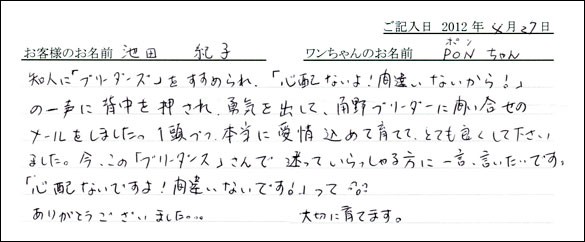 ご記入日 2012 年 4 月 27 日
お客様のお名前 池田 紀子 ワンちゃんのお名前 PON ポン ちゃん
知人に「ブリーダーズ」をすすめられ、「心配ないよ!間違いないから!」
の一声に背中を押され、勇気を出して、角野ブリーダーに問い合せの
メールをしました。1頭づつ、本当に愛情込めて育てて、とても良くして下さい
ました。今、この「ブリーダーズ」さんで迷っていらっしゃる方に一言、言いたいです。
「心配ないですよ!間違いないです。」って
ありがとうございました... 大切に育てます。